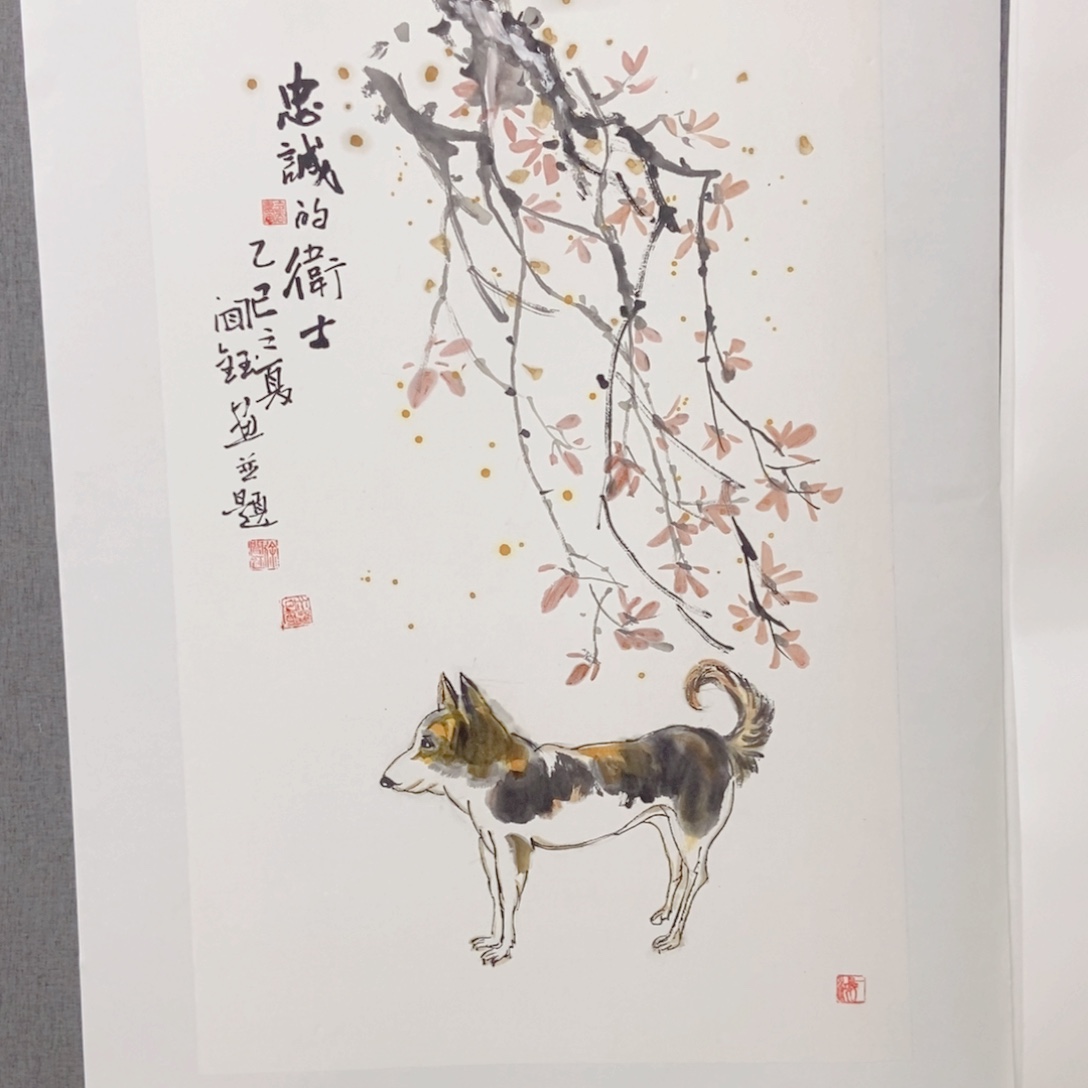 忠誠的衛士
乙巳之夏
鈺画並題